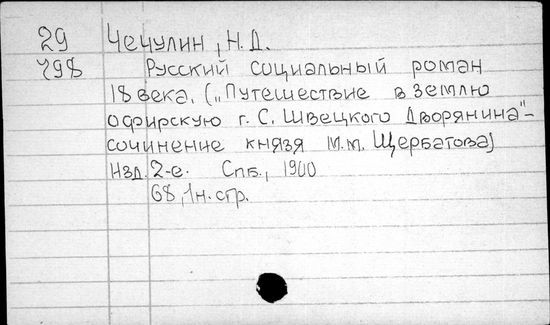 29 Чечулин, Н.Д.
798 Русский социальный роман
18 века. („Путешествие в землю
офирскую г. С. Швецкого Дворянина"-
сочинение князя М.М. Щербатова)
Изд. 2-е. Спб., 1900
68, 1н. стр.